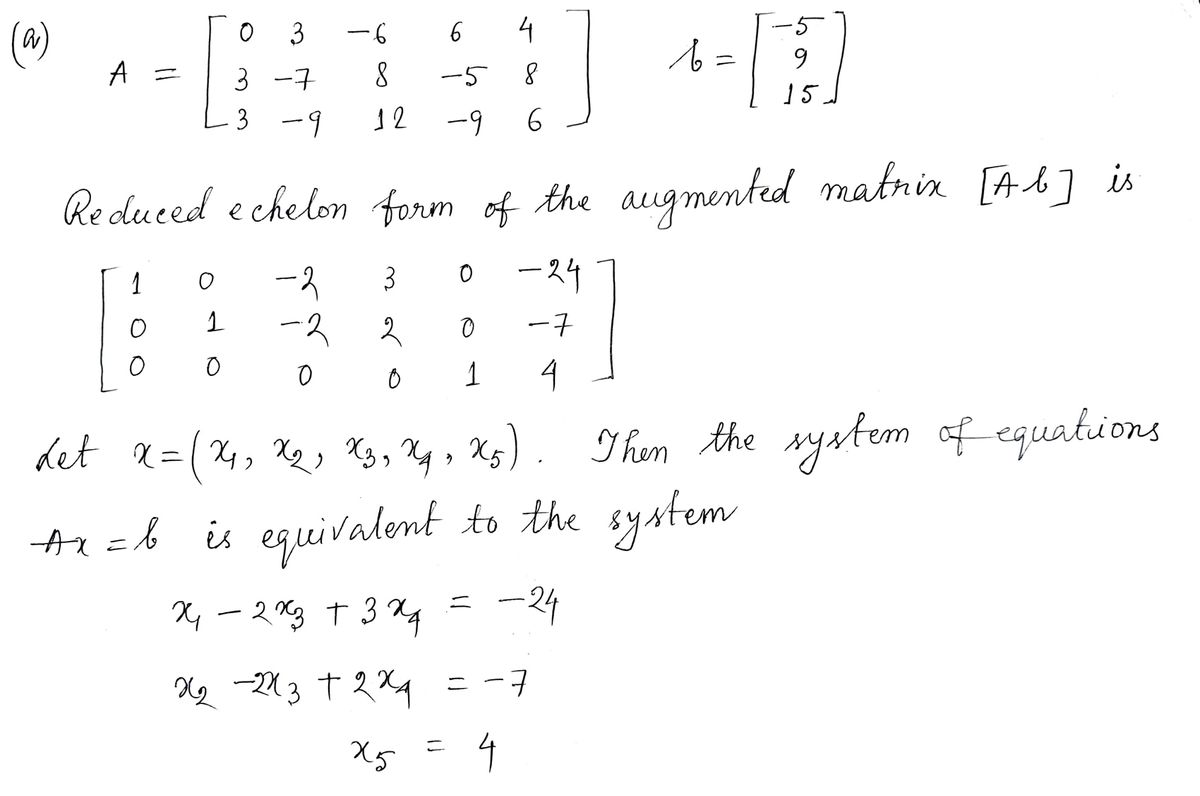 (a)
A = [ 0 3 -6 6 4
3 -7 8 -5 8
3 -9 12 -9 6 ] b = [ -5
9
15 ]
Reduced echelon form of the augmented matrix [A b] is
[ 1 0 -2 3 0 -24
0 1 -2 2 0 -7
0 0 0 0 1 4 ]
Let x = (x₁, x₂, x₃, x₄, x₅). Then the system of equations
Ax = b is equivalent to the system
x₁ - 2x₃ + 3x₄ = -24
x₂ - 2x₃ + 2x₄ = -7
x₅ = 4